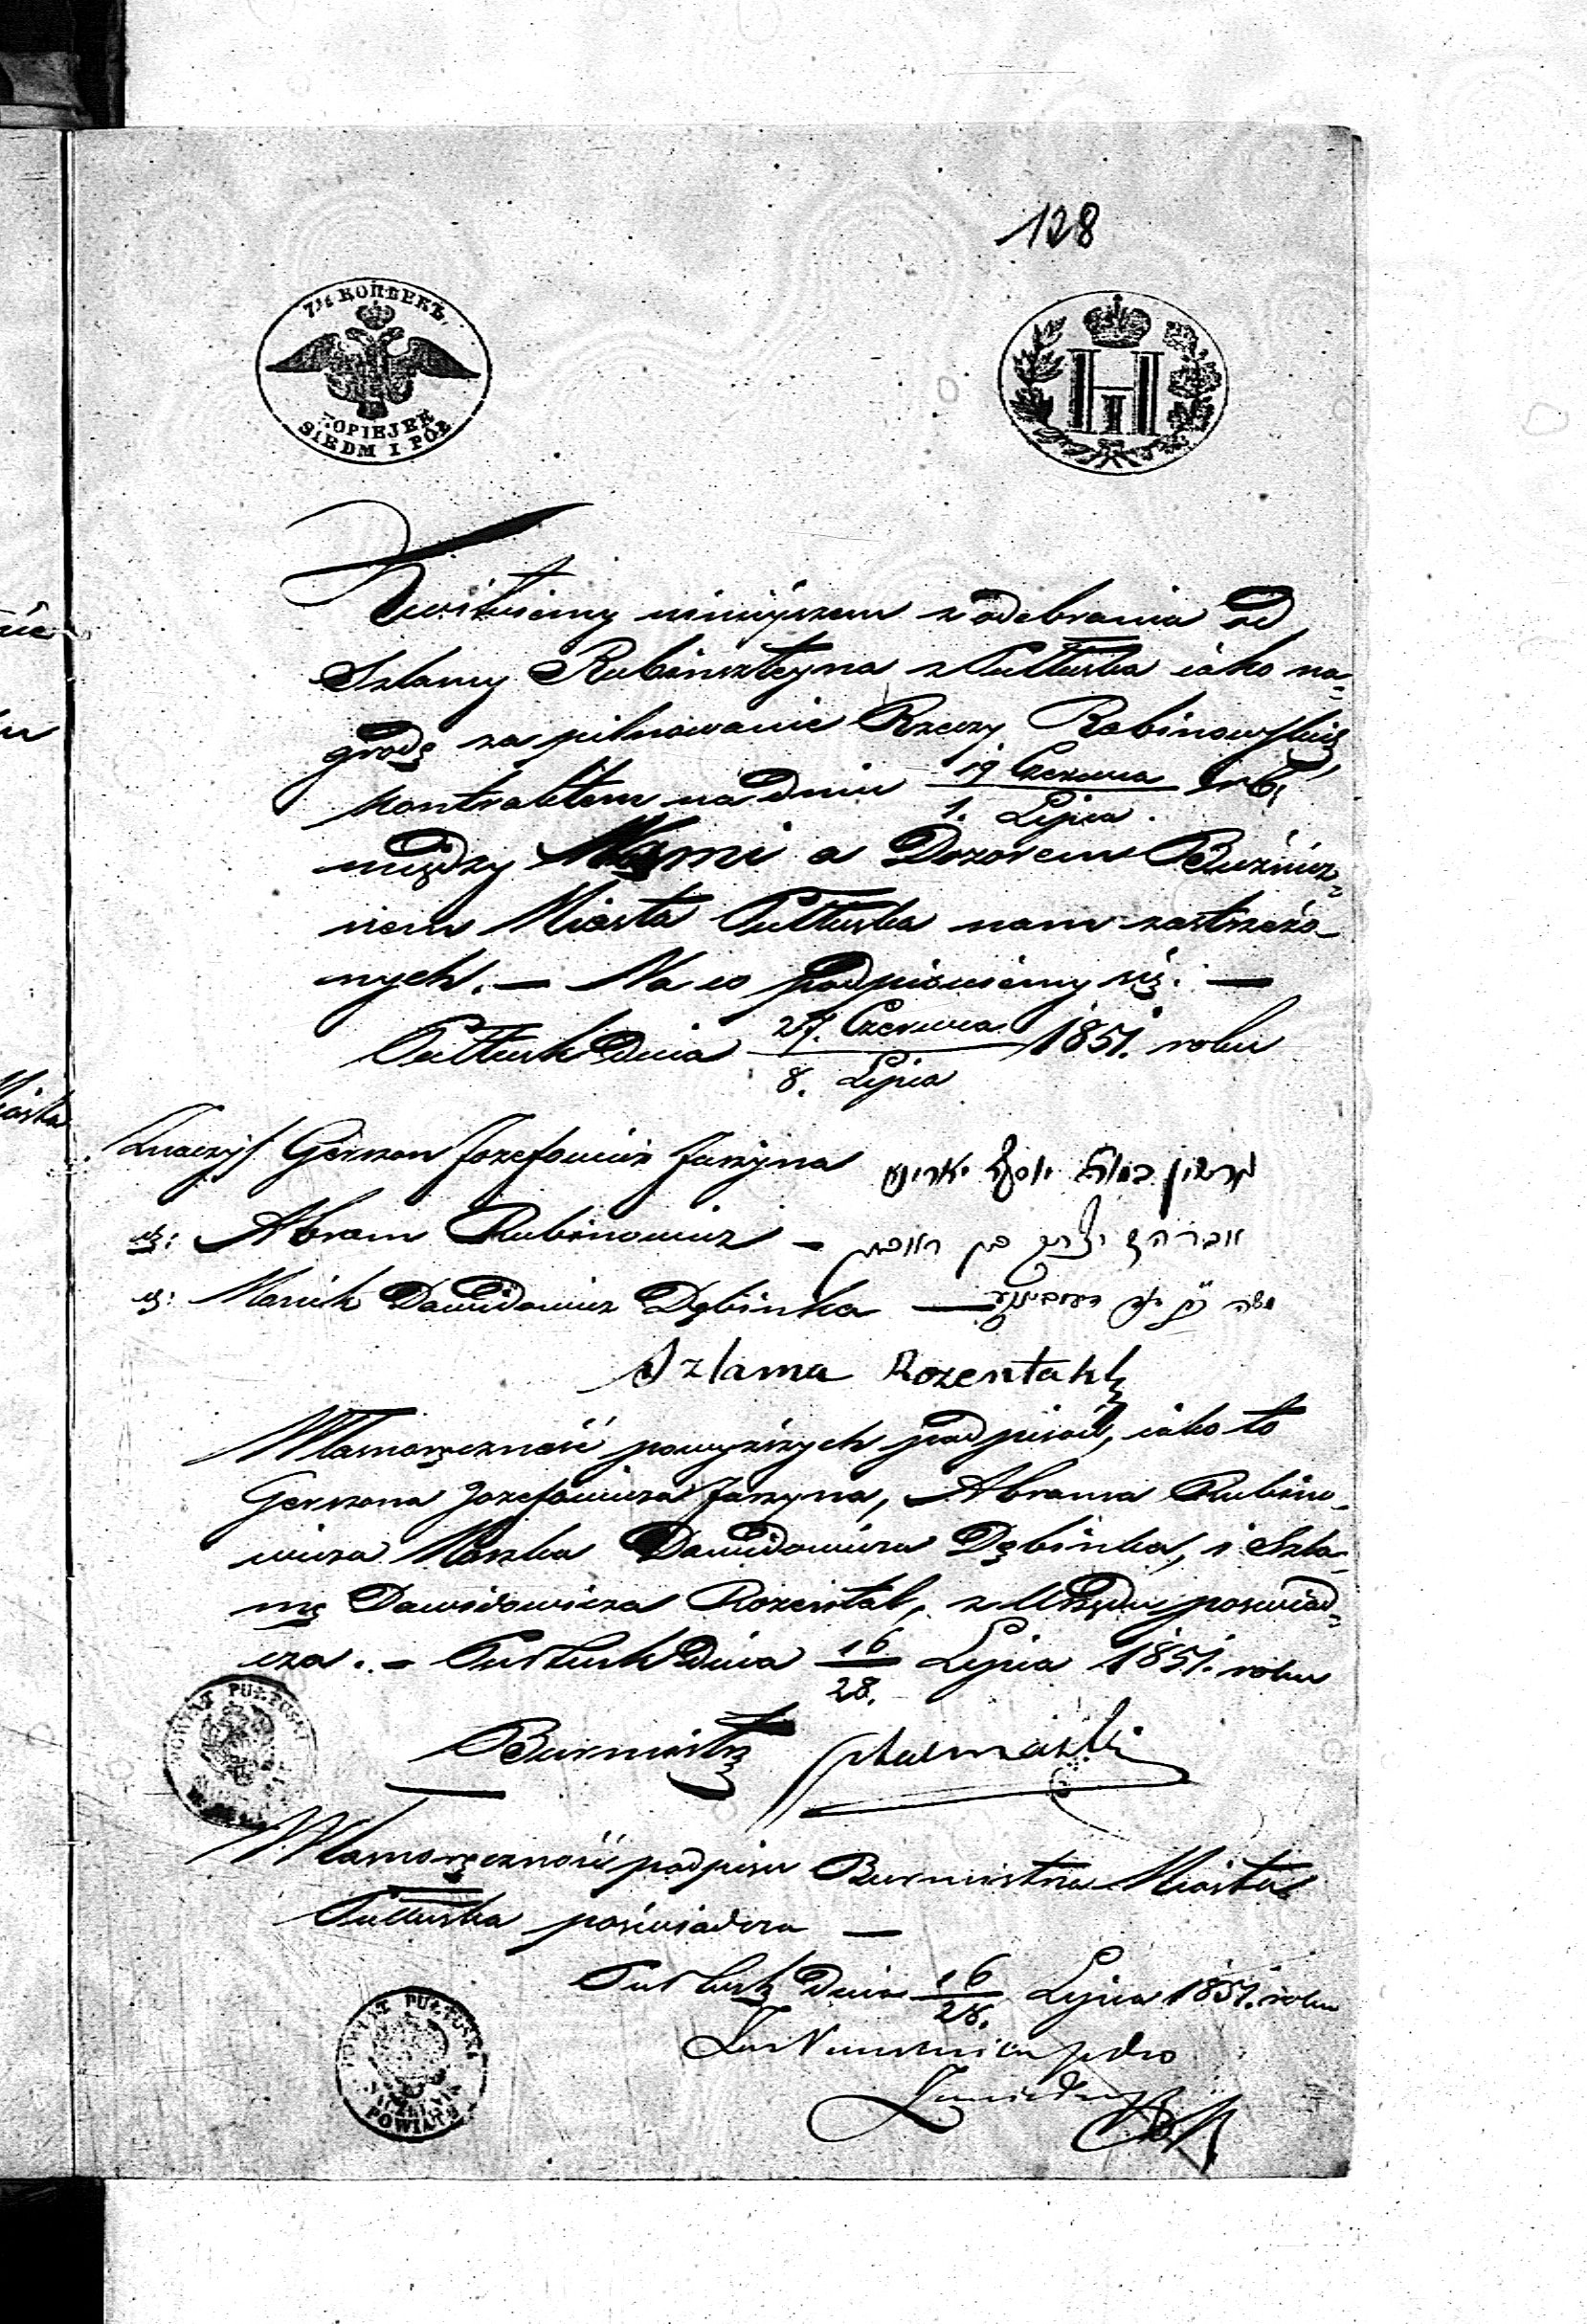 128
7½ КОПѢЕКЪ.
KOPIEJEK
SIEDM I PÓŁ
Kwituiemy ninieyszem z odebrania od
Szlamy Rubinszteyna z Pułtuska iako na=
grodę za pilnowanie Rzeczy Rabinowskiey
kontraktem na dniu 19 Czerwca / 1. Lipca r b,
między Nami a Dozorem Bużnicz=
nem Miasta Pułtuska nam zastrzeżo-
nych. — Na co podpisuiemy się. —
Pułtusk dnia 27. Czerwca / 8. Lipca 1851. roku
Znaczy/ Gerszon Jozefowicz Jarzyna גרשון
Abram Rubinowicz — אברהם יצחק בן ראובן
Mosiek Dawidowicz Dębinka — משה
Szlama Rozentahl
Własnoręczność powyższych podpisów, iako to
Gerszona Jozefowicza Jarzyna, Abrama Rubino-
wicza Moszka Dawidowicza Dębinka, i Szla-
mę Dawidowicza Rozental, z Urzędu poswiad=
cza. — Pułtusk dnia 16/28. Lipca 1851. roku
Burmistrz
POWIAT PUŁTUSKI
Własnoręczność podpisu Burmistrza Miasta
Pułtuska poświadcza —
Pułtusk dnia 16/28. Lipca 1851. roku
POWIAT PUŁTUSKI
NACZELNIK
POWIATU